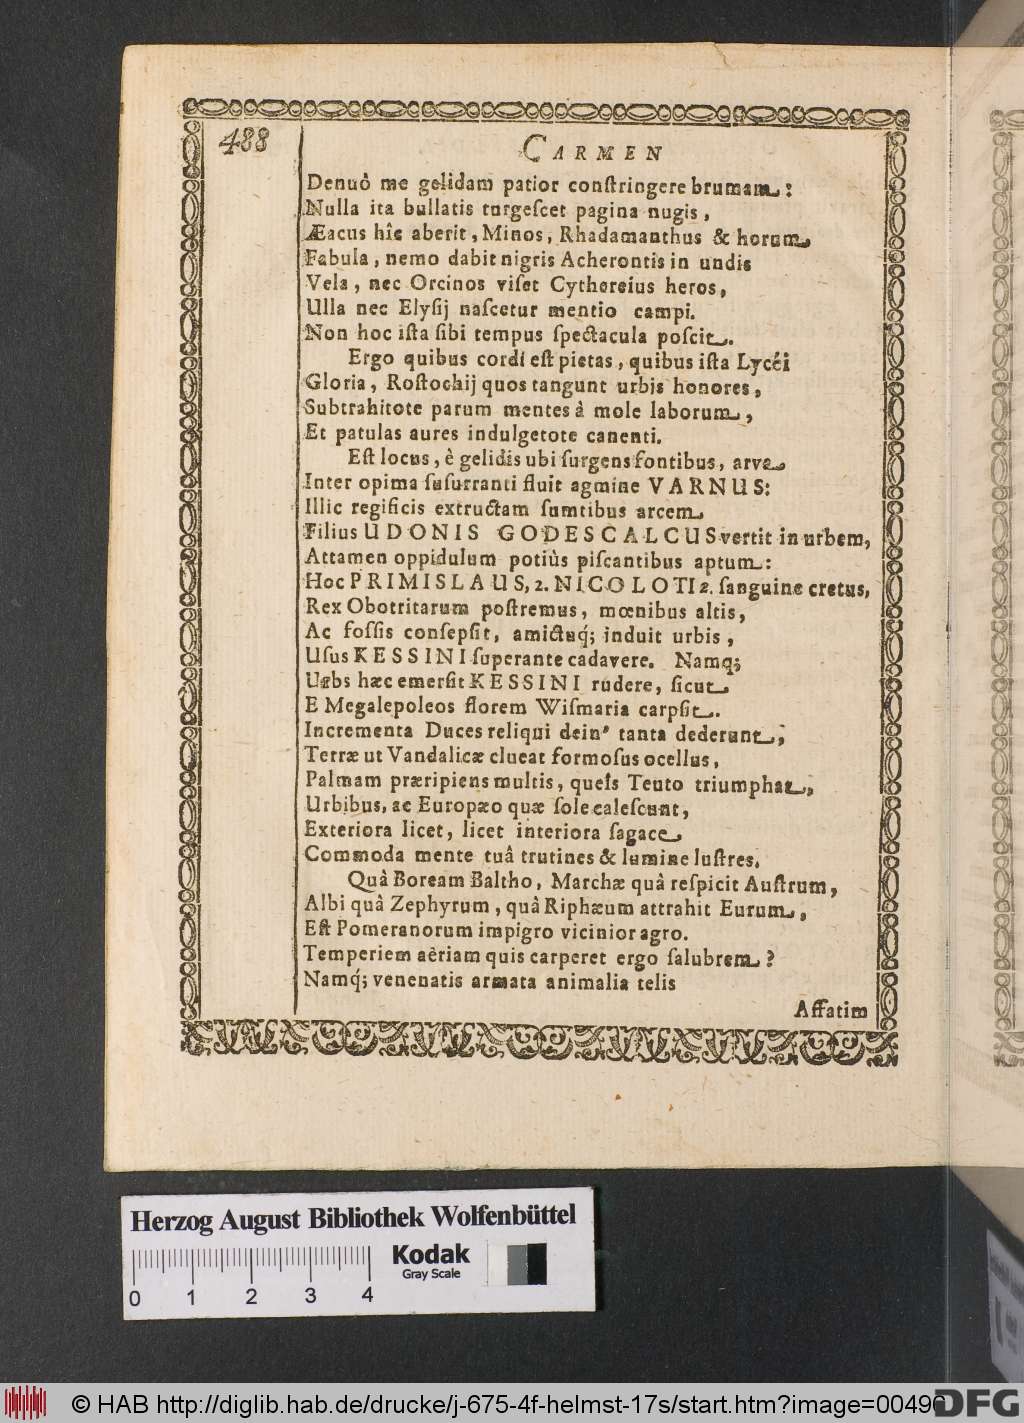 488
CARMEN
Denuò me gelidam patior conſtringere brumam:
Nulla ita bullatis turgeſcet pagina nugis,
Æacus hîc aberit, Minos, Rhadamanthus & horum
Fabula, nemo dabit nigris Acherontis in undis
Vela, nec Orcinos viſet Cythereius heros,
Ulla nec Elyſij naſcetur mentio campi.
Non hoc iſta ſibi tempus ſpectacula poſcit.
Ergo quibus cordi eſt pietas, quibus iſta Lycéi
Gloria, Roſtochij quos tangunt urbis honores,
Subtrahitote parum mentes à mole laborum,
Et patulas aures indulgetote canenti.
Eſt locus, è gelidis ubi ſurgens fontibus, arva
Inter opima ſuſurranti fluit agmine VARNUS:
Illic regificis extructam ſumtibus arcem
Filius UDONIS GODESCALCUS vertit in urbem,
Attamen oppidulum potiùs piſcantibus aptum:
Hoc PRIMISLAUS, 2. NICOLOTI 2. ſanguine cretus,
Rex Obotritarum poſtremus, mœnibus altis,
Ac foſſis conſepſit, amictuq́; induit urbis,
Uſus KESSINI ſuperante cadavere. Namq;
Urbs hæc emerſit KESSINI rudere, ſicut
E Megalepoleos florem Wiſmaria carpſit.
Incrementa Duces reliqui dein' tanta dederunt,
Terræ ut Vandalicæ clueat formoſus ocellus,
Palmam præripiens multis, queîs Teuto triumphat,
Urbibus, ac Europæo quæ ſole caleſcunt,
Exteriora licet, licet interiora ſagace
Commoda mente tuâ trutines & lumine luſtres.
Quà Boream Baltho, Marchæ quà reſpicit Auſtrum,
Albi quà Zephyrum, quà Riphæum attrahit Eurum,
Eſt Pomeranorum impigro vicinior agro.
Temperiem aëriam quis carperet ergo ſalubrem?
Namq́; venenatis armata animalia telis
Affatim
Herzog August Bibliothek Wolfenbüttel
Kodak
Gray Scale
0 1 2 3 4
© HAB http://diglib.hab.de/drucke/j-675-4f-helmst-17s/start.htm?image=00496
DFG